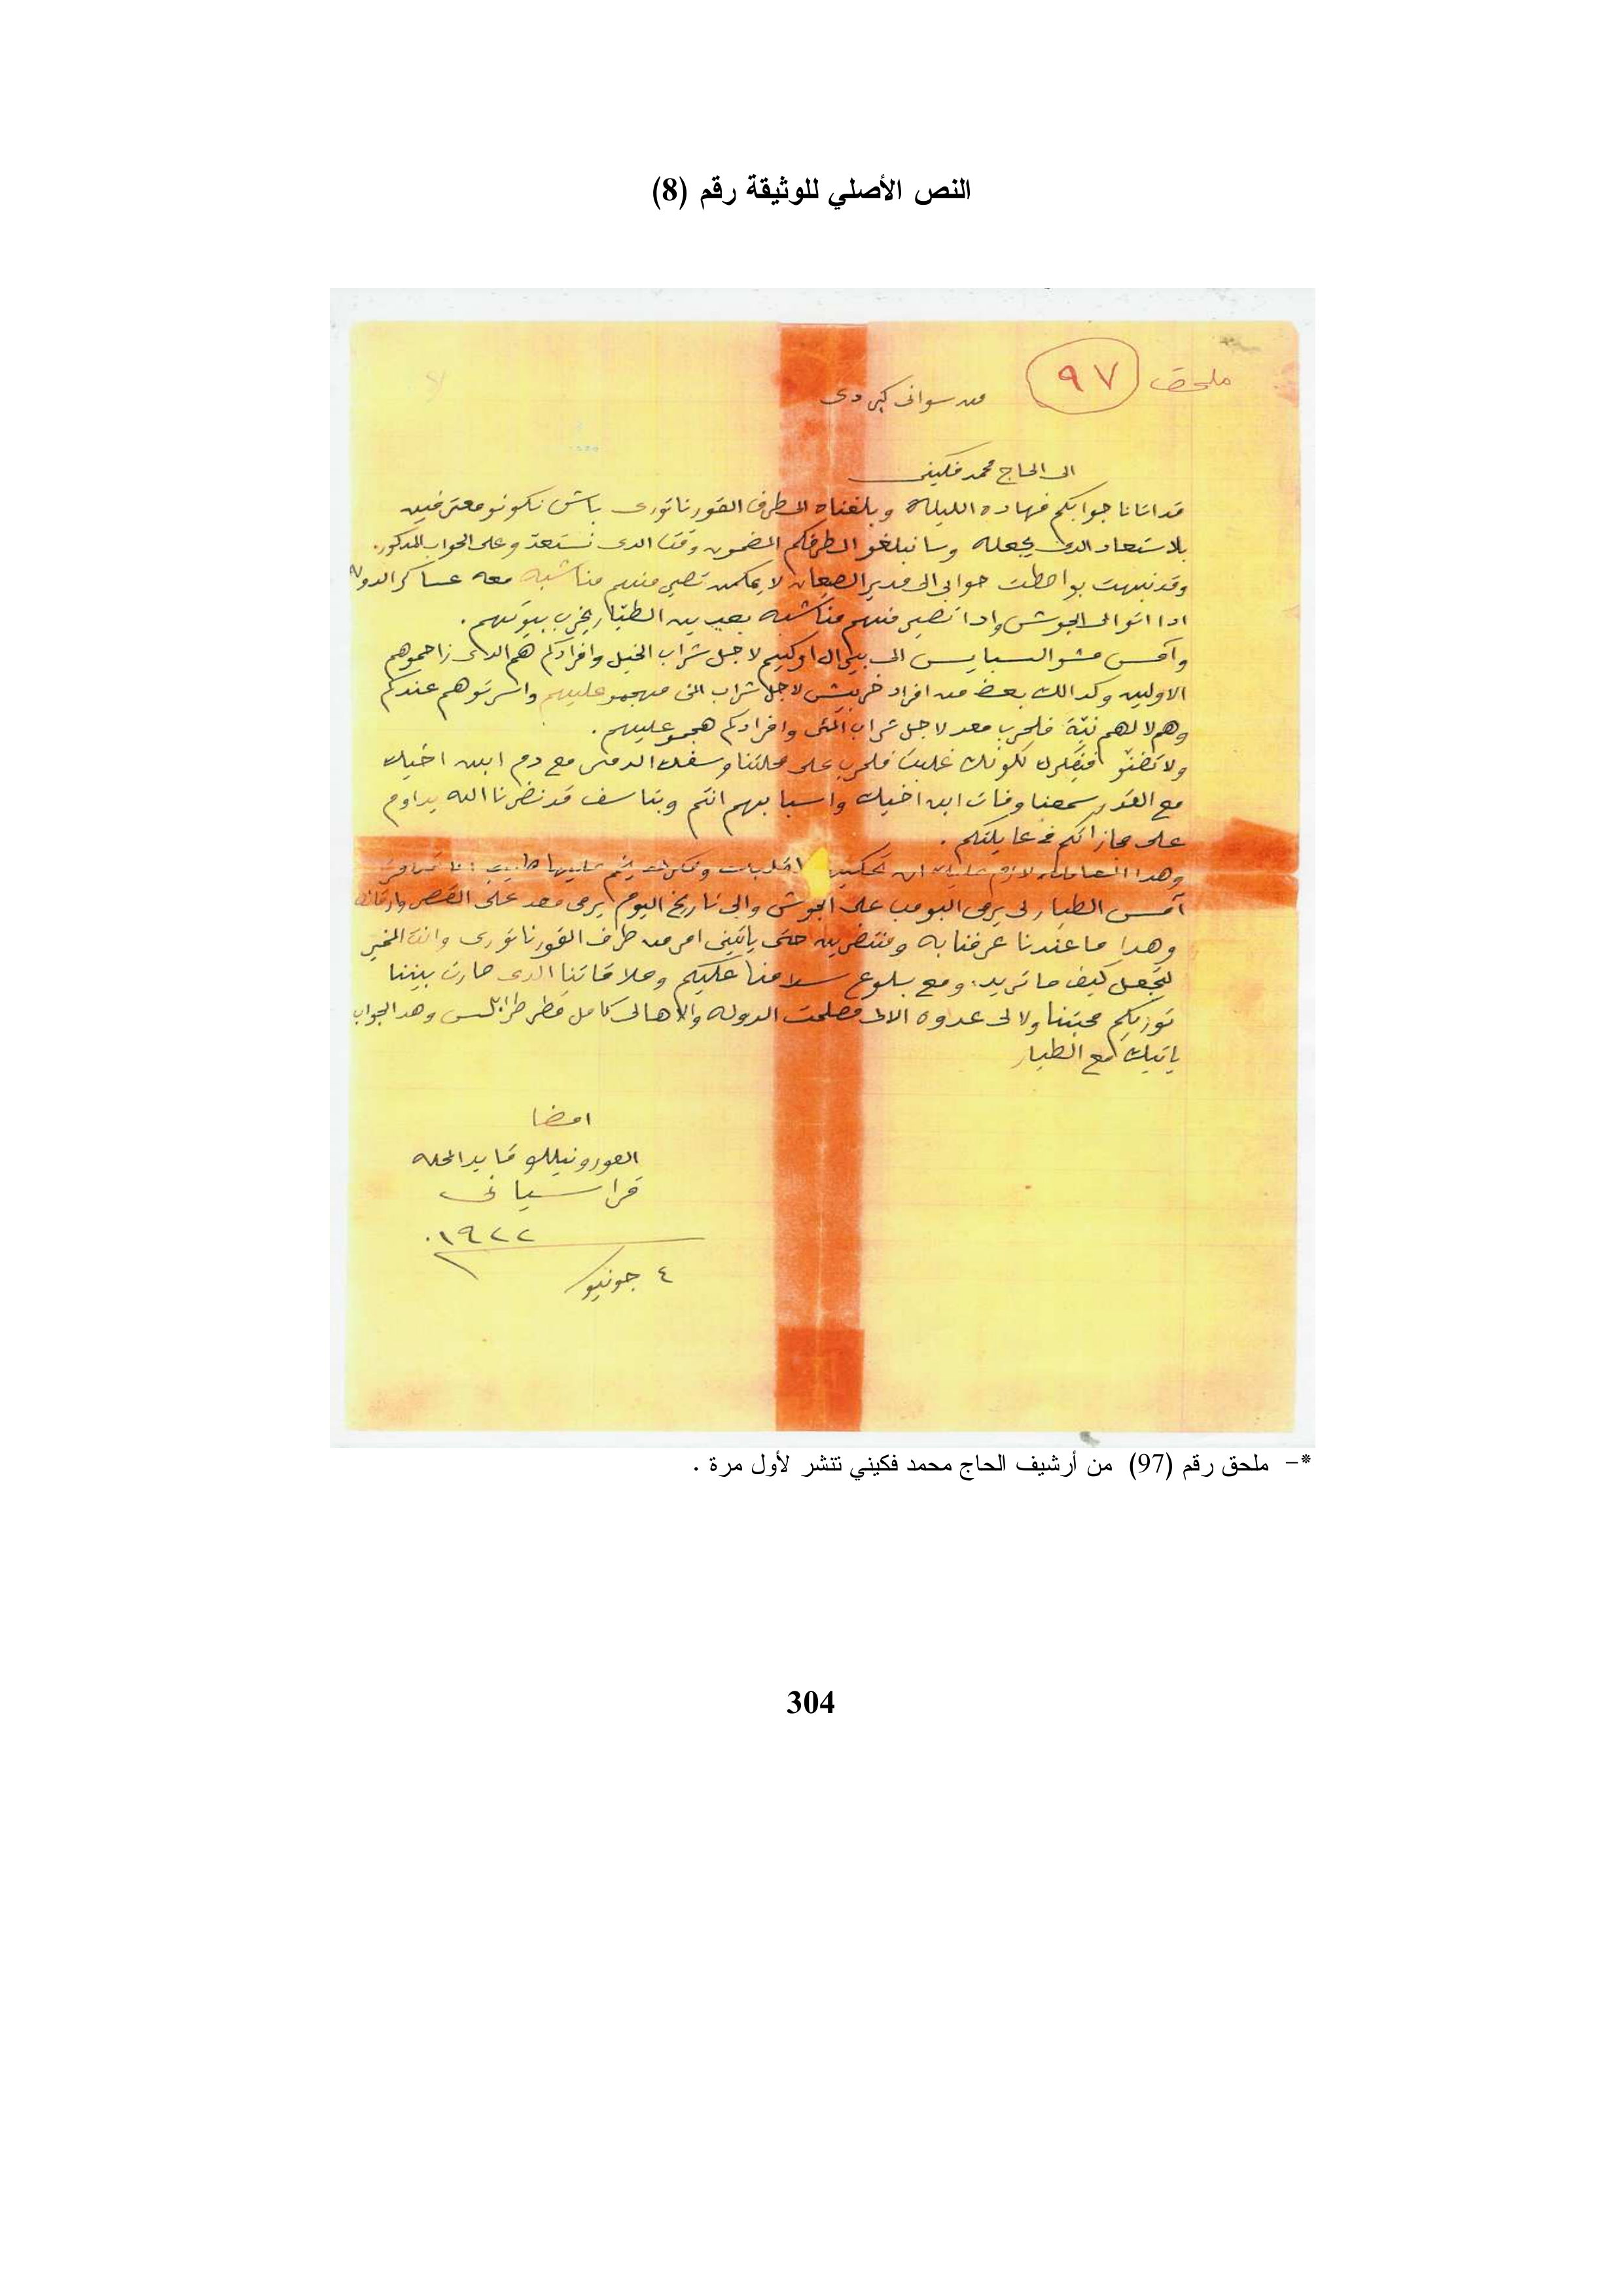 النص الأصلي للوثيقة رقم (8)
ملحق ٩٧
من سوانى كردى
الى الحاج محمد فكينى
قد اتانا جوابكم فهاده الليلة وبلغناه الى طرف القورناتورى باش تكونو معترفين
بلاستعاد الدى يجعله وسا نبلغو الطرفكم المضمون وقتا الدى نستعد وعلى الجواب المدكور.
وقد نبهت بواصطت جوابى الى مدير الصيعان لا يمكن تصير منهم مناشبه معه عساكر الدوله
ادا اتو الى الجوش وادا تصير منهم مناشبه بعدين الطيار يخرب بيوتهم.
وآمس مشو السبايس الى بير ال لاجل شراب الخيل وافرادكم هم الدى زاحموهم
الاولين وكدالك بعض من افراد خربيش لاجل شراب المئ هجمو عليهم واسرتوهم عندكم
وهم لا لهم نيّة فلحرب معد لاجل شراب المئ وافرادكم هجمو عليهم.
ولا تضنّو لكونك غلبت فلحرب على محلتنا وسفك الدمى مع دم ابن اخيك
مع القدر سمعنا وفات ابن اخيك واسبابهم انتم وبتاسف قد نضرنا الله يداوم
على مجازاتكم فى عايلتكم.
وهدا لازم عليك ان
آمس الطيار لى يرمى البومب على الجوش والى تاريخ اليوم يرمى معد على القصر
وهدا ما عندنا عرفنا به ومنتضرين حتى ياتينى امر من طرف القورناتورى وانت المخير
لتجعل كيف ما تريد. ومع بلوع سلامنا عليكم وملاقاتنا الدى صارت بيننا
توريكم محبتنا ولا لى عدوه الالى مصلحت الدوله والاهالى كامل قطر طرابلس وهد الجواب
ياتيك مع الطيار
امضا
القورونيللو قايد المحله
قراسيانى
١٩٢٢
٤ جونيو
*- ملحق رقم (97) من أرشيف الحاج محمد فكيني تنشر لأول مرة .
304